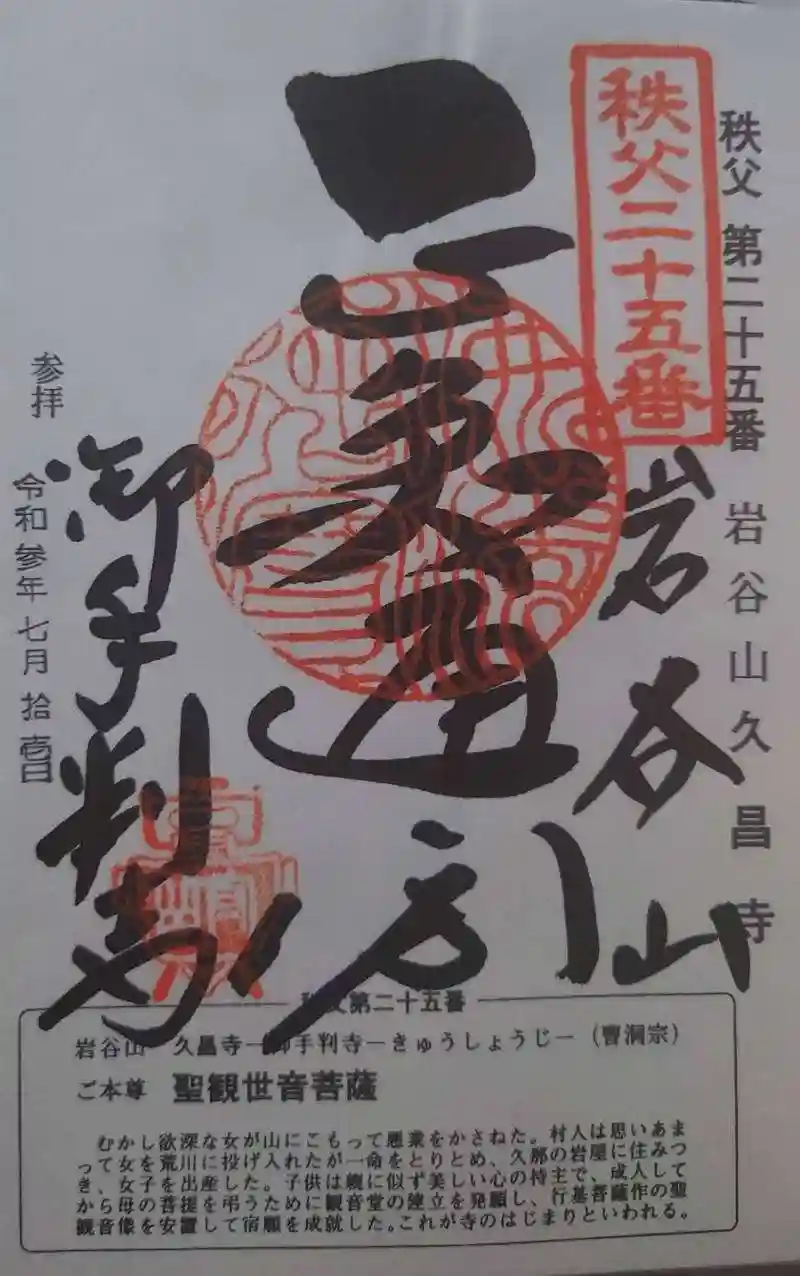 秩父 第二十五番 岩谷山久昌寺
秩父二十五番
岩谷山
御手判寺
参拝 令和参年七月拾壱日
秩父第二十五番
岩谷山 久昌寺―御手判寺―きゅうしょうじ―(曹洞宗)
ご本尊 聖観世音菩薩
むかし欲深な女が山にこもって悪業をかさねた。村人は思いあま
って女を荒川に投げ入れたが一命をとりとめ、久那の岩屋に住みつ
き、女子を出産した。子供は親に似ず美しい心の持主で、成人して
から母の菩提を弔うために観音堂の建立を発願し、行基菩薩作の聖
観音像を安置して宿願を成就した。これが寺のはじまりといわれる。